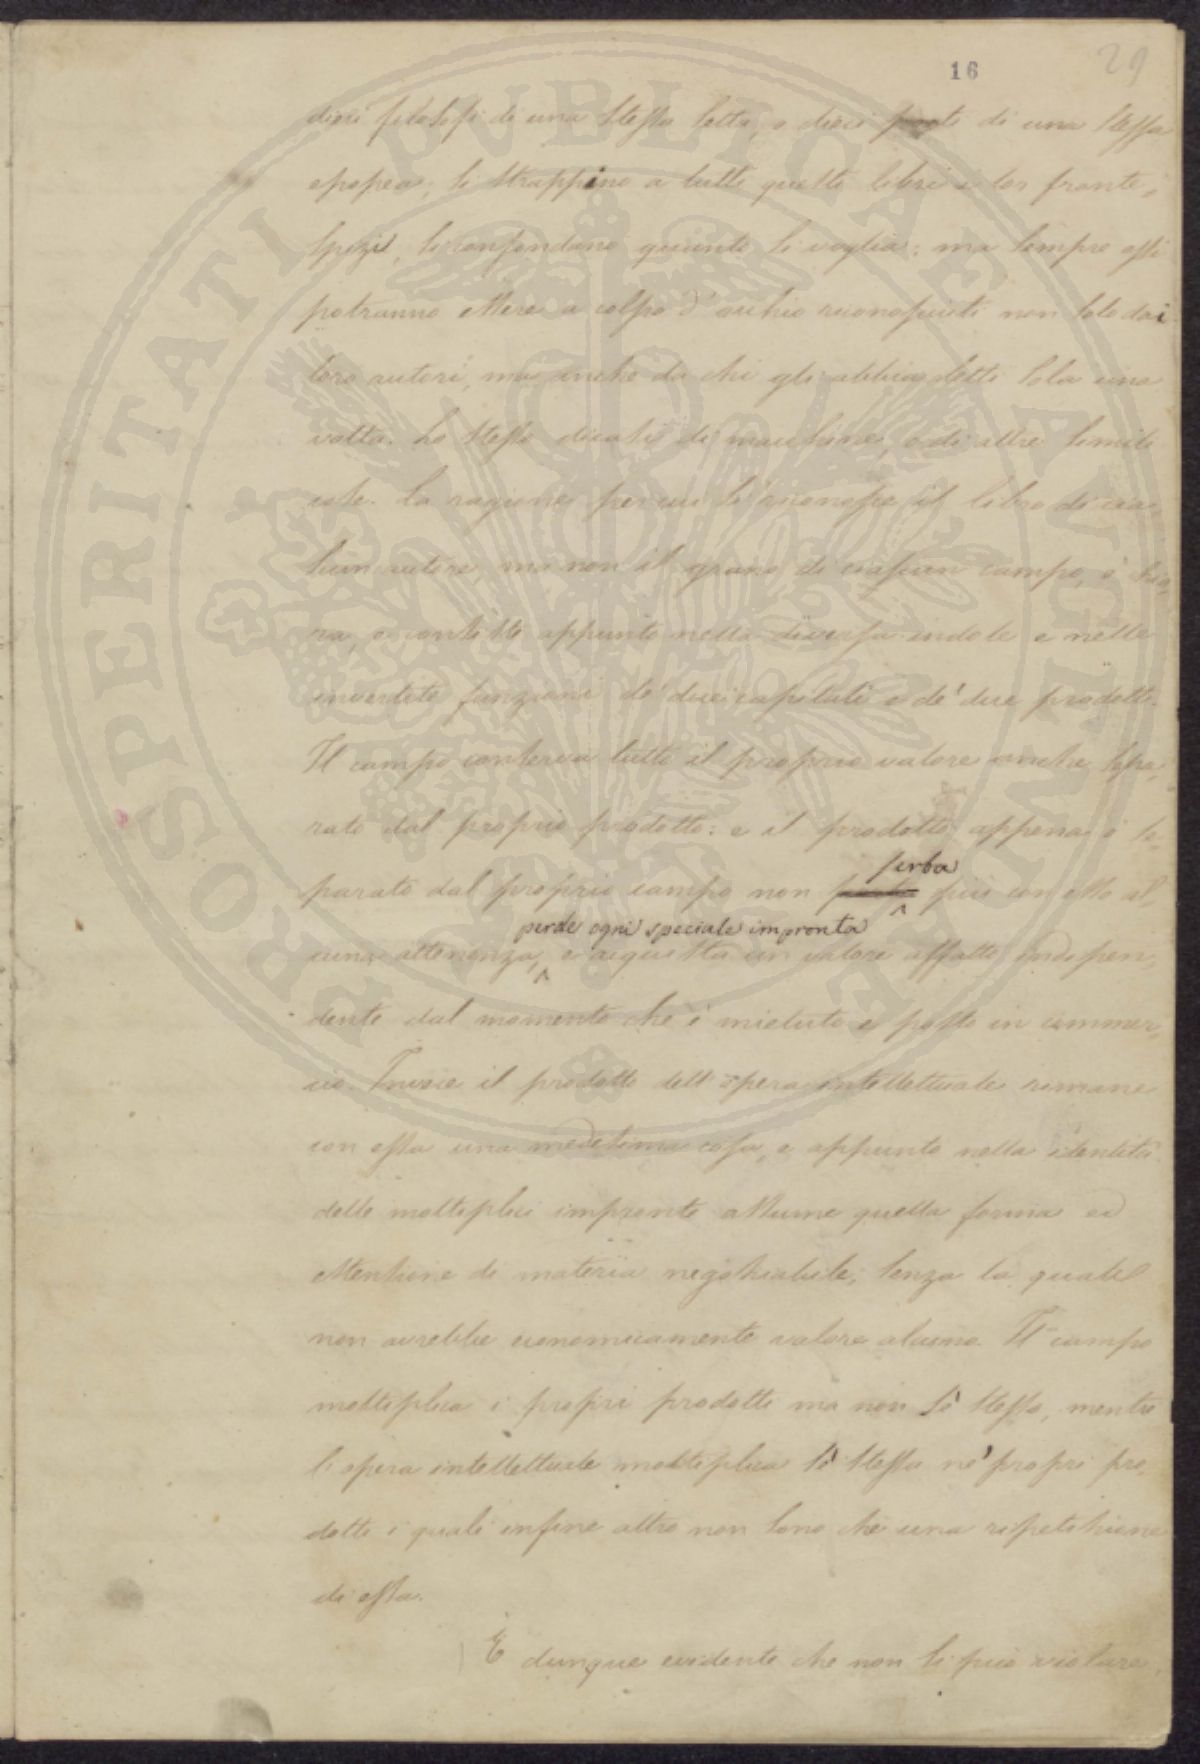 16
29
dieci filosofi di una stessa setta, o dieci poeti di una stessa
epopea; si strappino a tutti questi libri i lor fronte,
spizii, si confondano quanto si voglia: ma sempre essi
potranno essere a colpo d'occhio riconosciuti non solo dai
loro autori, ma anche da chi gli abbia letti sola una
volta. Lo stesso dicasi di macchine, o di altre simili
cose. La ragione per cui si riconosce il libro di cia,
scun autore, ma non il grano di ciascun campo, è chia,
ra, e consiste appunto nella diversa indole e nelle
invertite funzioni de' due capitali e de' due prodotti.
Il campo conserva tutto il proprio valore anche sepa,
rato dal proprio prodotto: e il prodotto appena è se,
serba
parato dal proprio campo non più con esso al,
perde ogni speciale impronta
cuna attenenza, e acquista un valore affatto indipen,
dente dal momento che è mietuto e posto in commer,
cio. Invece il prodotto dell'opera intellettuale rimane
con essa una medesima cosa, e appunto nella identità
delle molteplici impronte assume quella forma ed
estensione di materia negoziabile, senza la quale
non avrebbe economicamente valore alcuno. Il campo
moltiplica i propri prodotti ma non sè stesso, mentre
l'opera intellettuale moltiplica sè stessa ne' propri pro,
dotti i quali infine altro non sono che una ripetizione
di essa.
È dunque evidente che non si può violare
PROSPERITATI PVBLICAE AVGENDAE